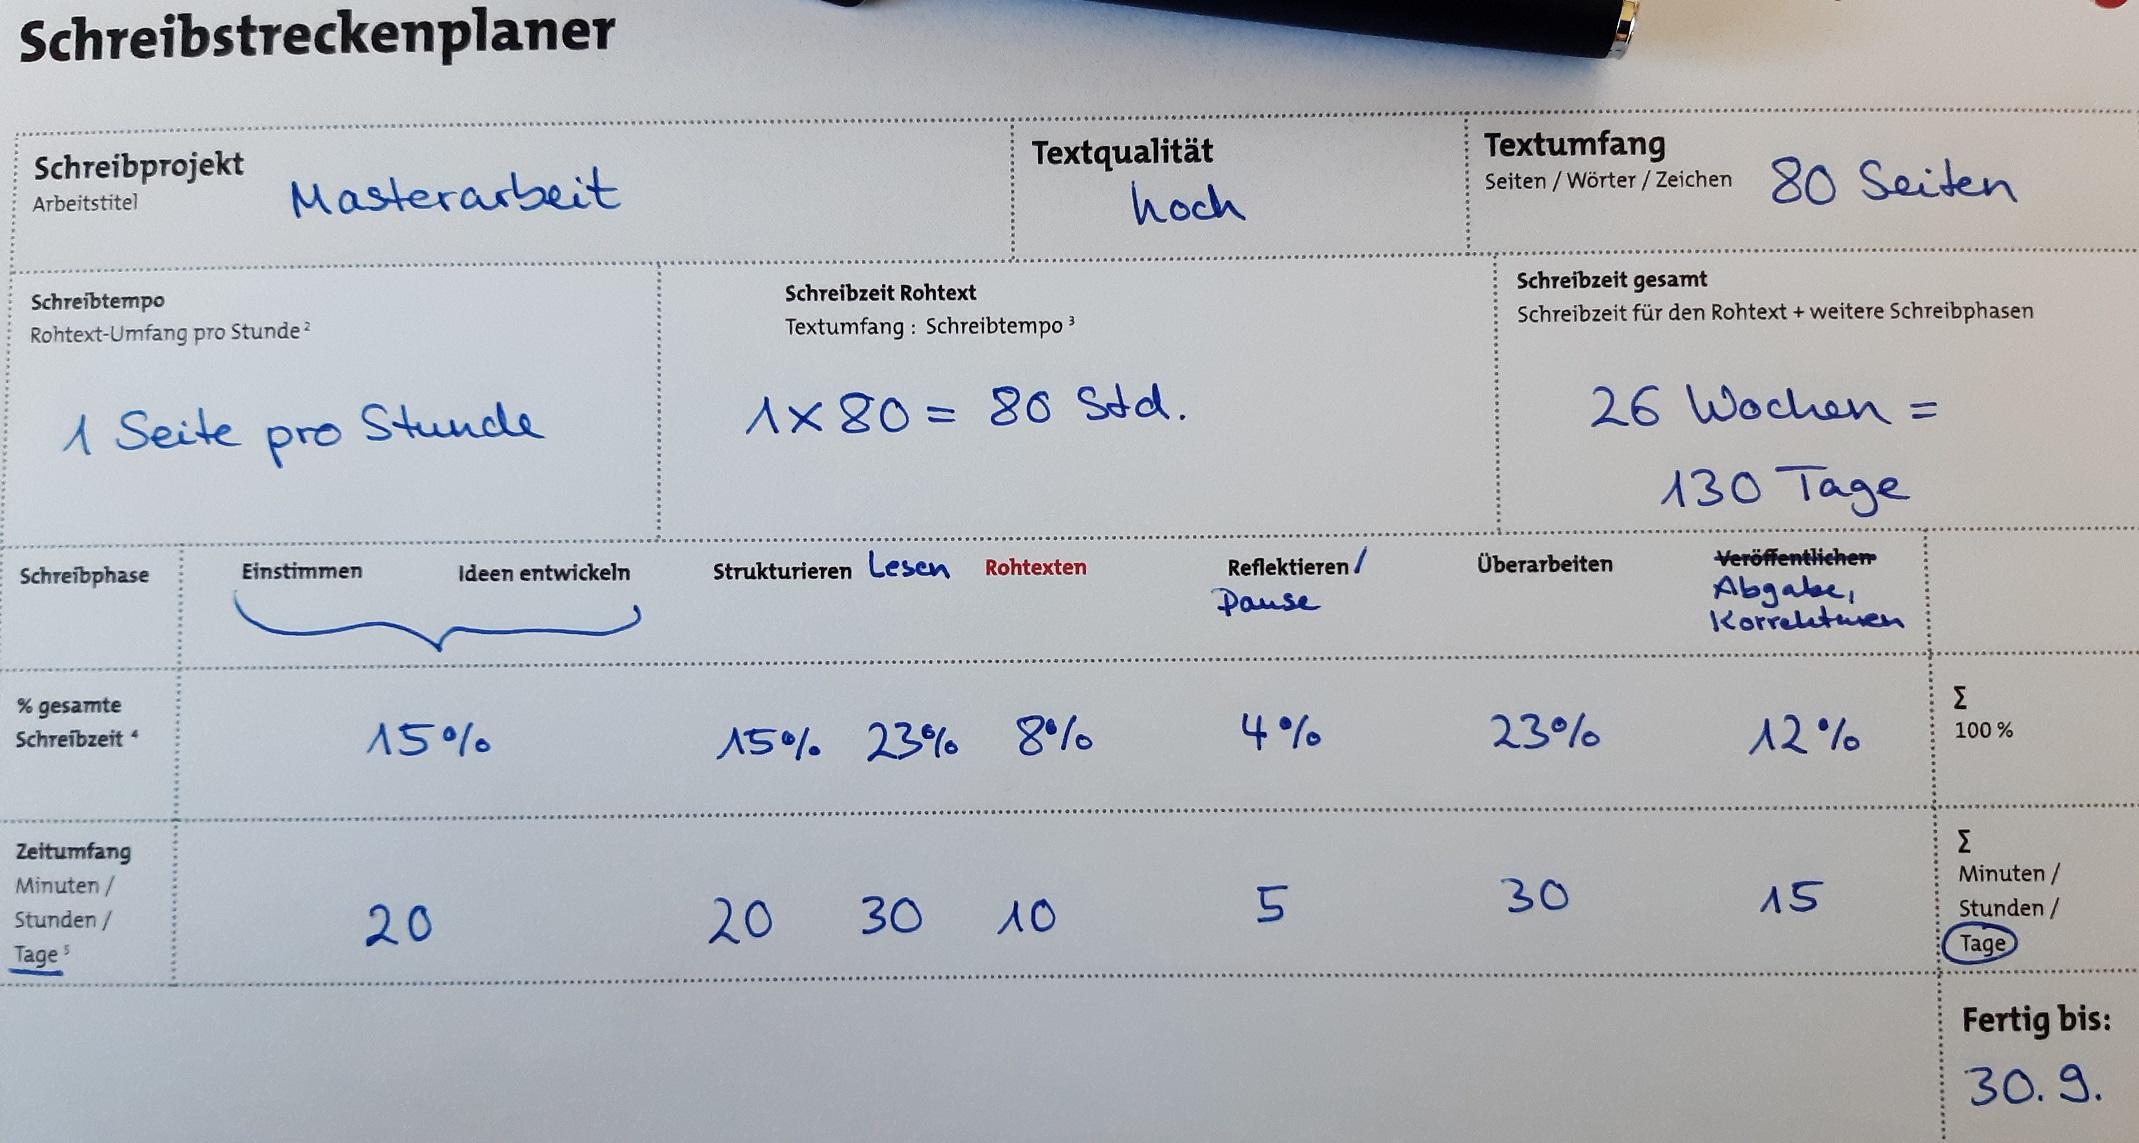 Schreibstreckenplaner
Schreibprojekt
Arbeitstitel
Masterarbeit
Textqualität
hoch
Textumfang
Seiten / Wörter / Zeichen
80 Seiten
Schreibtempo
Rohtext-Umfang pro Stunde ²
1 Seite pro Stunde
Schreibzeit Rohtext
Textumfang : Schreibtempo ³
1 x 80 = 80 Std.
Schreibzeit gesamt
Schreibzeit für den Rohtext + weitere Schreibphasen
26 Wochen =
130 Tage
Schreibphase
Einstimmen
Ideen entwickeln
Strukturieren
Lesen
Rohtexten
Reflektieren /
Pause
Überarbeiten
Veröffentlichen
Abgabe,
Korrekturen
% gesamte
Schreibzeit ⁴
15%
15%
23%
8%
4%
23%
12%
Σ
100 %
Zeitumfang
Minuten /
Stunden /
Tage ⁵
20
20
30
10
5
30
15
Σ
Minuten /
Stunden /
Tage
Fertig bis:
30. 9.